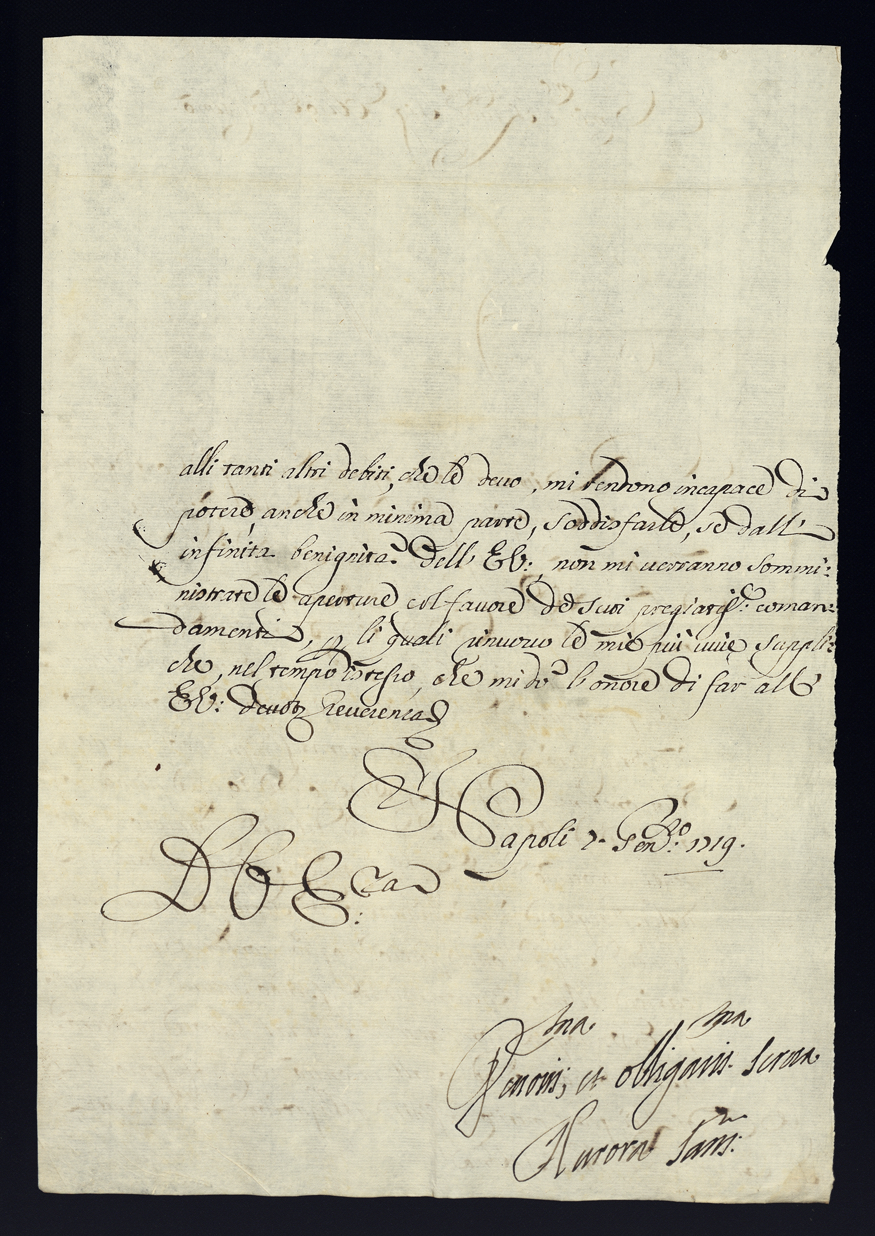 alli tanti altri debiti, che le devo, mi rendono incapace di
potere, anche in minima parte, soddisfarle, se dall'
infinita benignità dell' E.V:, non mi verranno sommi:
nistrate le aperture col favore de' suoi pregiatiss.ⁱ coman:
damenti, li quali rinuovo le mie più vive suppli:
che, nel tempo istesso, che mi dò l'onore di far all'
E.V: devota Reverenza
Napoli 7 Gen.ro 1719.
D. V. E.cza
Devotis.ma, et obligatis.ma Serva
Aurora San.: